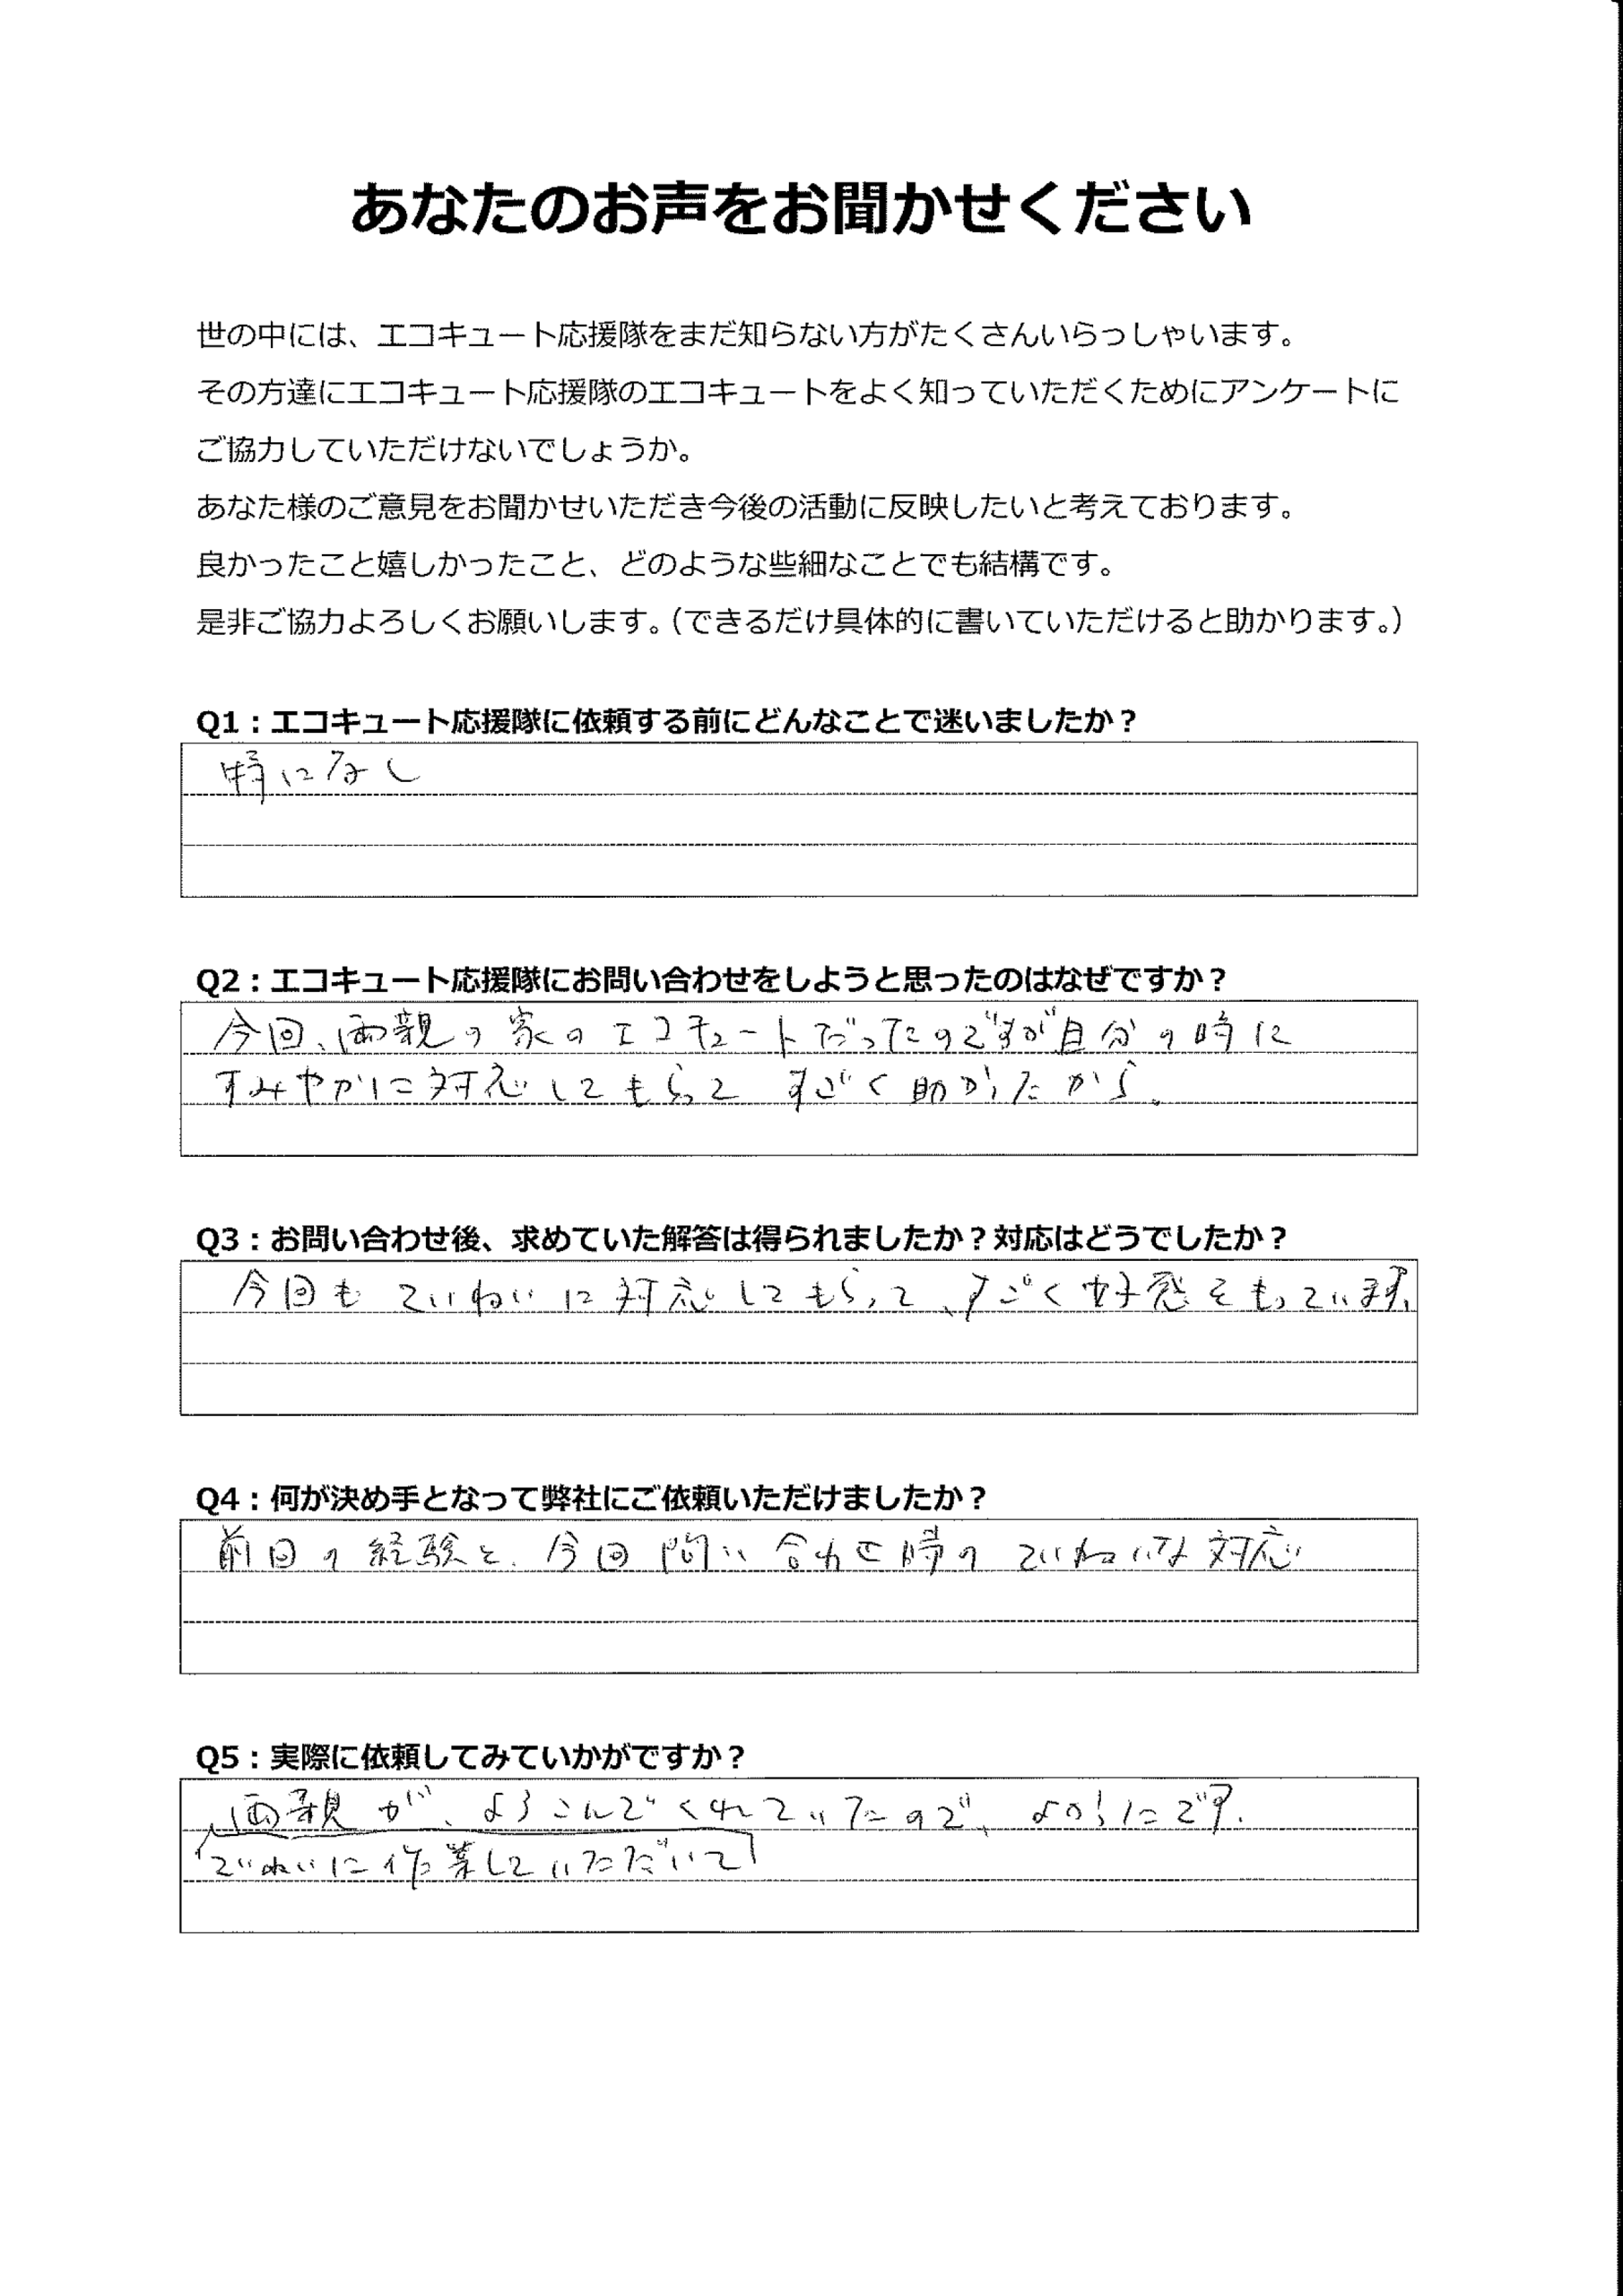 あなたのお声をお聞かせください
世の中には、エコキュート応援隊をまだ知らない方がたくさんいらっしゃいます。
その方達にエコキュート応援隊のエコキュートをよく知っていただくためにアンケートに
ご協力していただけないでしょうか。
あなた様のご意見をお聞かせいただき今後の活動に反映したいと考えております。
良かったこと嬉しかったこと、どのような些細なことでも結構です。
是非ご協力よろしくお願いします。（できるだけ具体的に書いていただけると助かります。）
Q1：エコキュート応援隊に依頼する前にどんなことで迷いましたか？
特になし
Q2：エコキュート応援隊にお問い合わせをしようと思ったのはなぜですか？
今回、両親の家のエコキュートだったのですが自分の時に
すみやかに対応してもらって すごく助かったから。
Q3：お問い合わせ後、求めていた解答は得られましたか？対応はどうでしたか？
今回も ていねいに対応してもらって、すごく好感をもっています。
Q4：何が決め手となって弊社にご依頼いただけましたか？
前回の経験と、今回問い合わせ時のていねいな対応
Q5：実際に依頼してみていかがですか？
両親が、よろこんでくれていたので、よかったです。
ていねいに作業していただいて